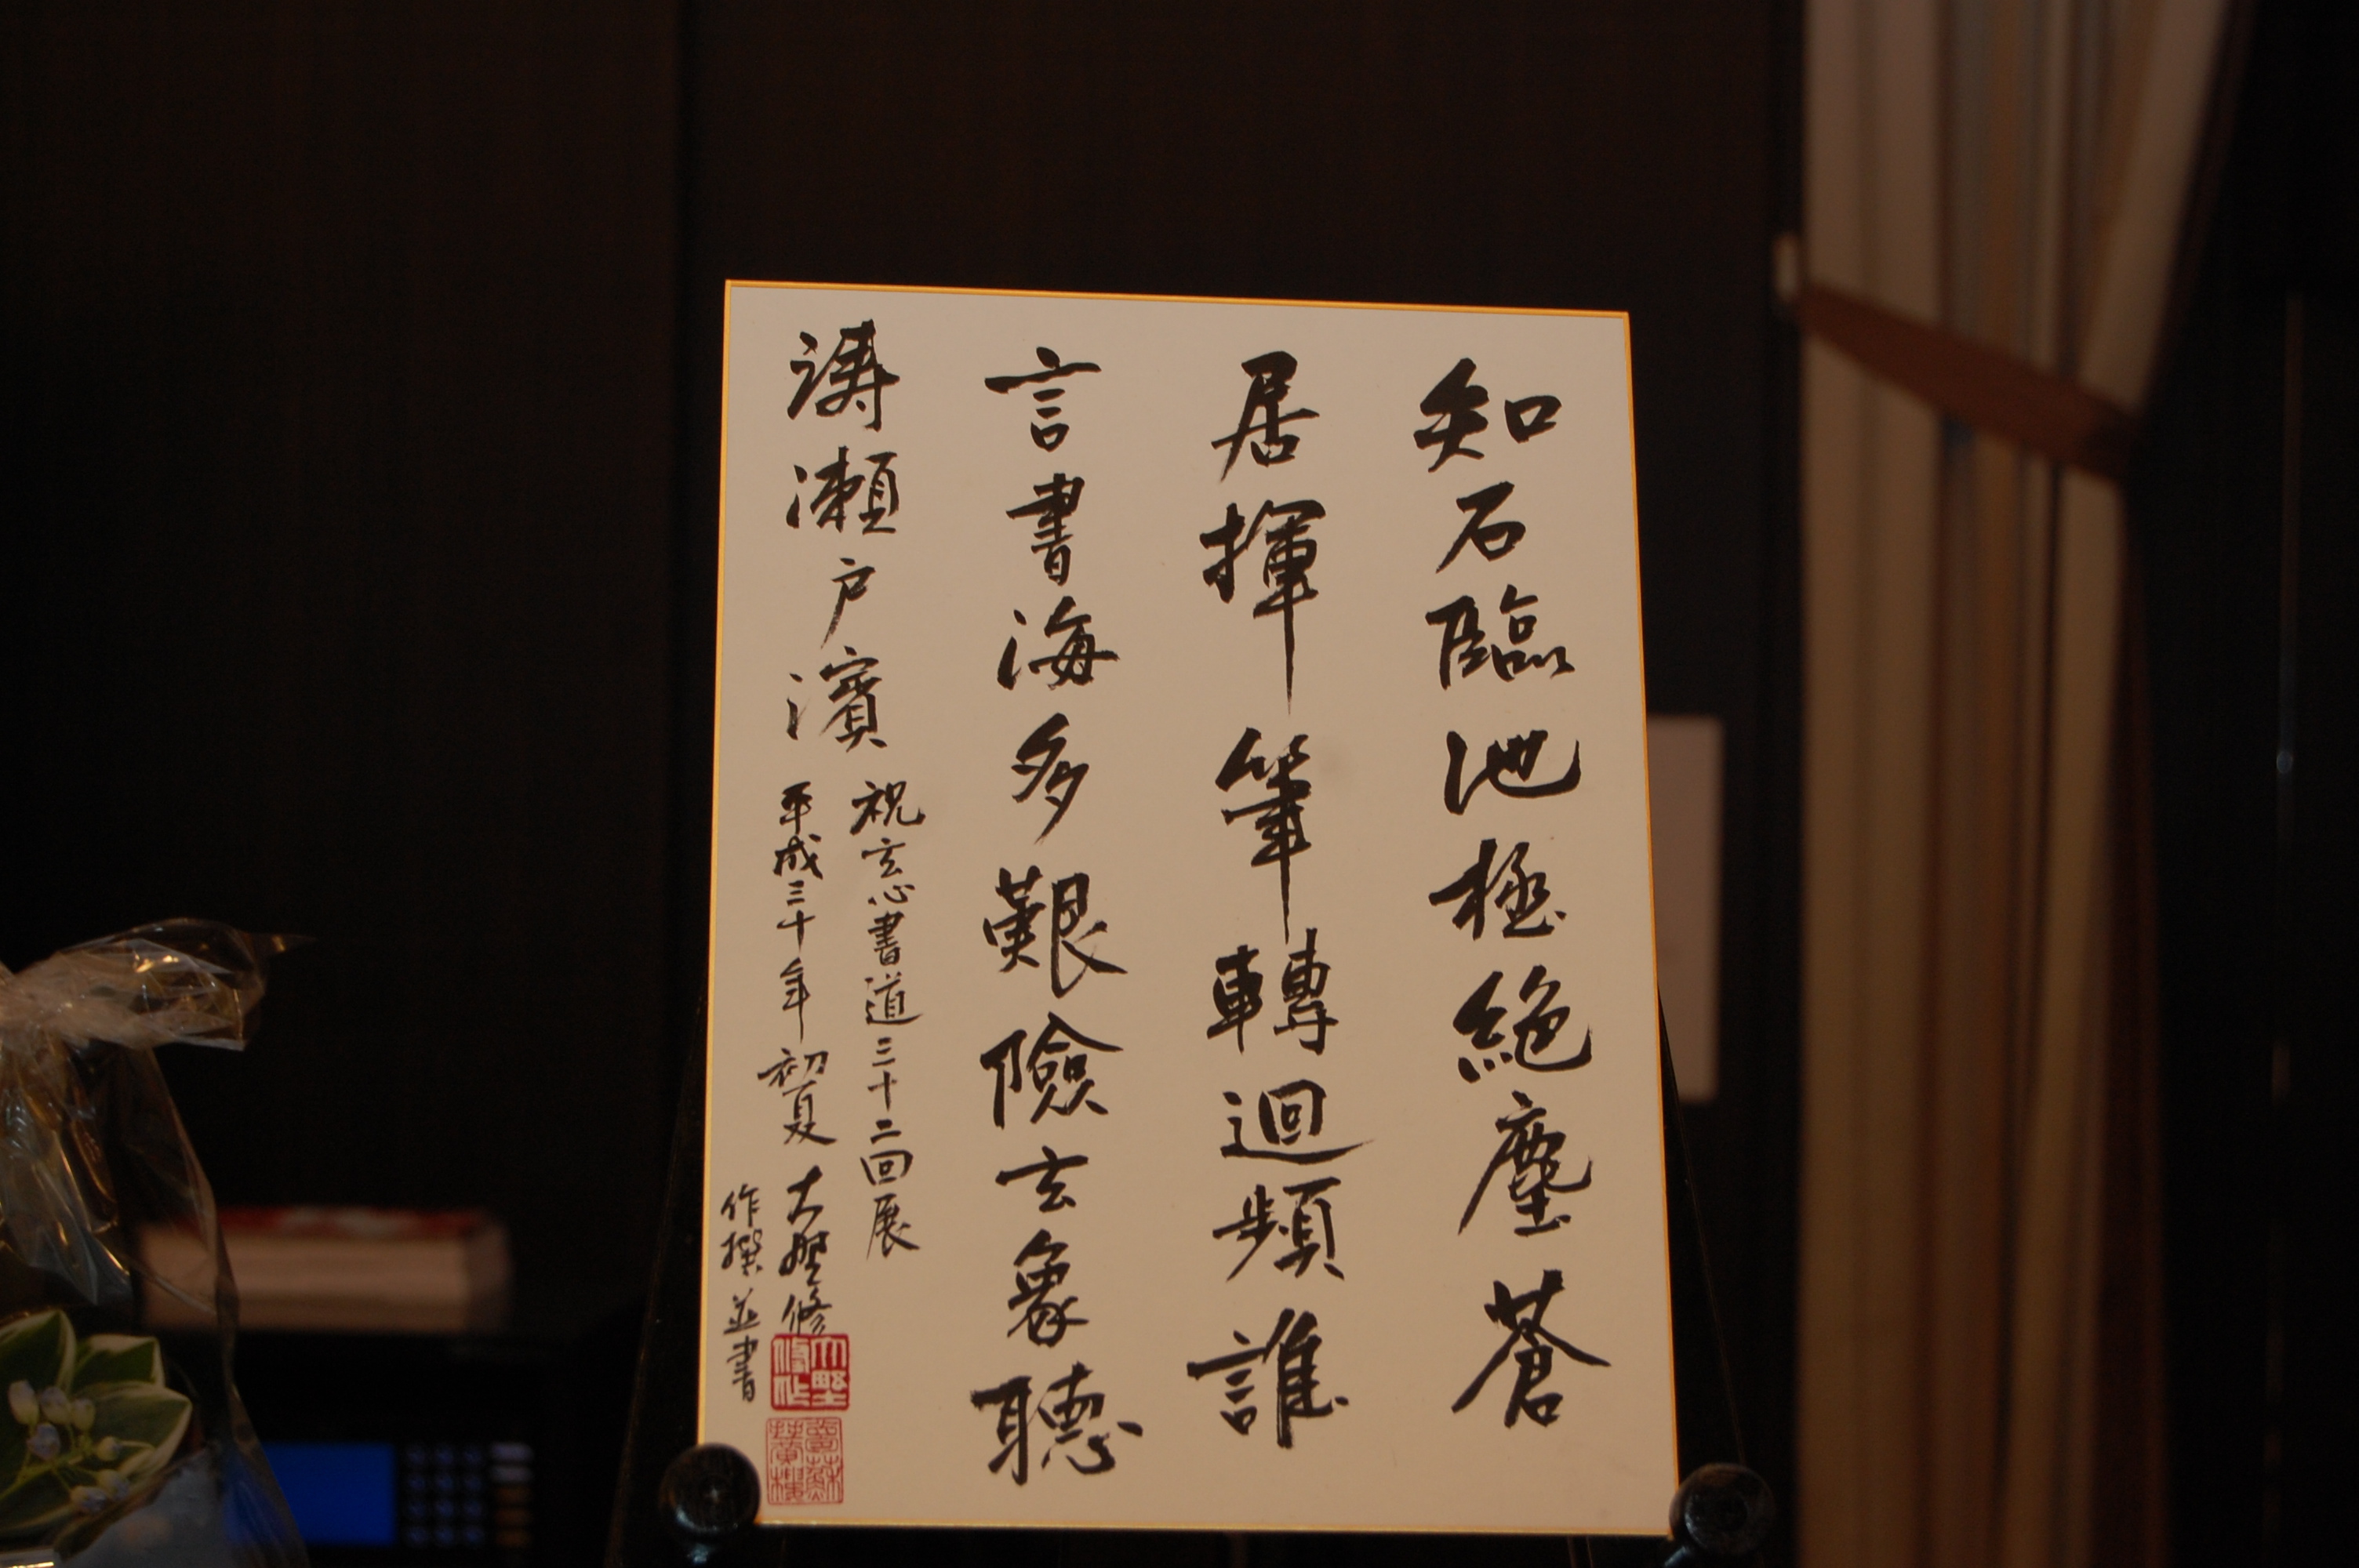 知石臨池極絶塵蒼
居揮筆轉迴頻誰
言書海多艱險玄象聽
濤瀬戸濱
祝玄心書道三十二回展
平成三十年初夏 大野修
作撰並書